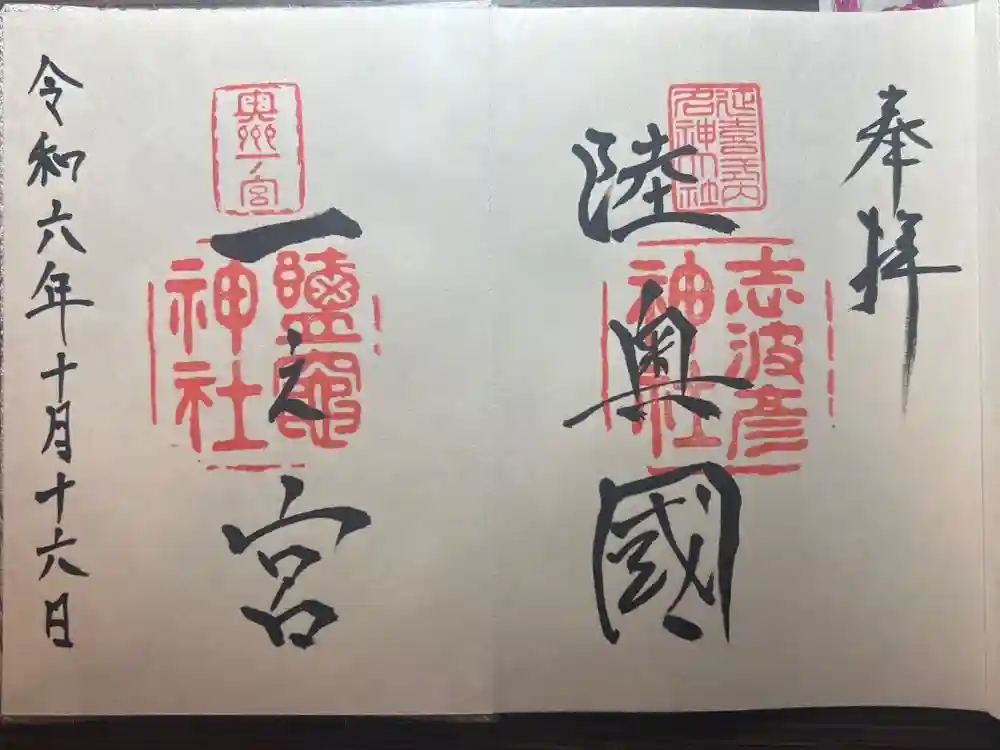 奉拝
延喜式内
名神大社
陸奥國
志波彦
神社
奥州一ノ宮
一之宮
鹽竈
神社
令和六年十月十六日